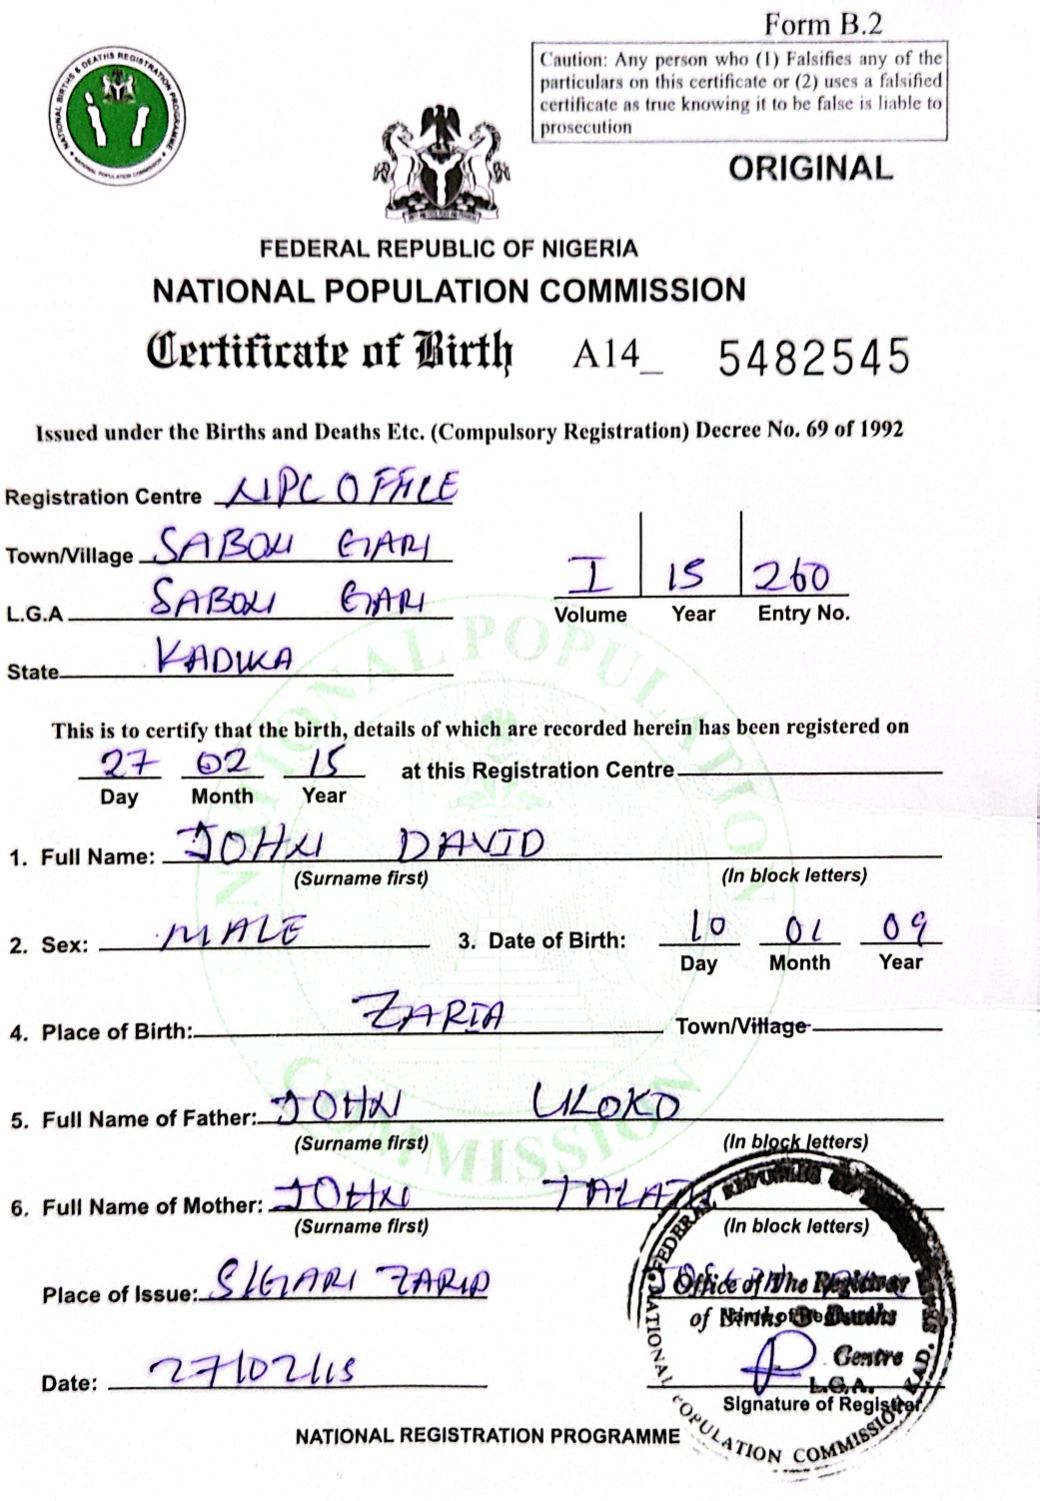 Form B.2
Caution: Any person who (1) Falsifies any of the
particulars on this certificate or (2) uses a falsified
certificate as true knowing it to be false is liable to
prosecution
NATIONAL BIRTHS & DEATHS REGISTRATION PROGRAMME
NATIONAL POPULATION COMMISSION
ORIGINAL
FEDERAL REPUBLIC OF NIGERIA
NATIONAL POPULATION COMMISSION
Certificate of Birth A14_ 5482545
Issued under the Births and Deaths Etc. (Compulsory Registration) Decree No. 69 of 1992
Registration Centre NPC OFFICE
Town/Village SABON GARI
L.G.A SABON GARI
I 15 260
Volume Year Entry No.
State KADUNA
NATIONAL POPULATION COMMISSION
This is to certify that the birth, details of which are recorded herein has been registered on
27 02 15 at this Registration Centre
Day Month Year
1. Full Name: JOHN DAVID
(Surname first) (In block letters)
2. Sex: MALE 3. Date of Birth: 10 01 09
Day Month Year
4. Place of Birth: ZARIA Town/Village
5. Full Name of Father: JOHN UKOKO
(Surname first) (In block letters)
6. Full Name of Mother: JOHN
(Surname first) (In block letters)
Place of Issue: S/GARI ZARIA
Office of The Registrar
of Births & Deaths
Name of Registrar
Centre
L.G.A.
Date: 27/02/15
Signature of Registrar
FEDERAL REPUBLIC OF
NATIONAL POPULATION COMMISSION KAD.
NATIONAL REGISTRATION PROGRAMME